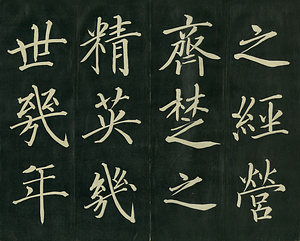 之經營
齊楚之
精英幾
世幾年